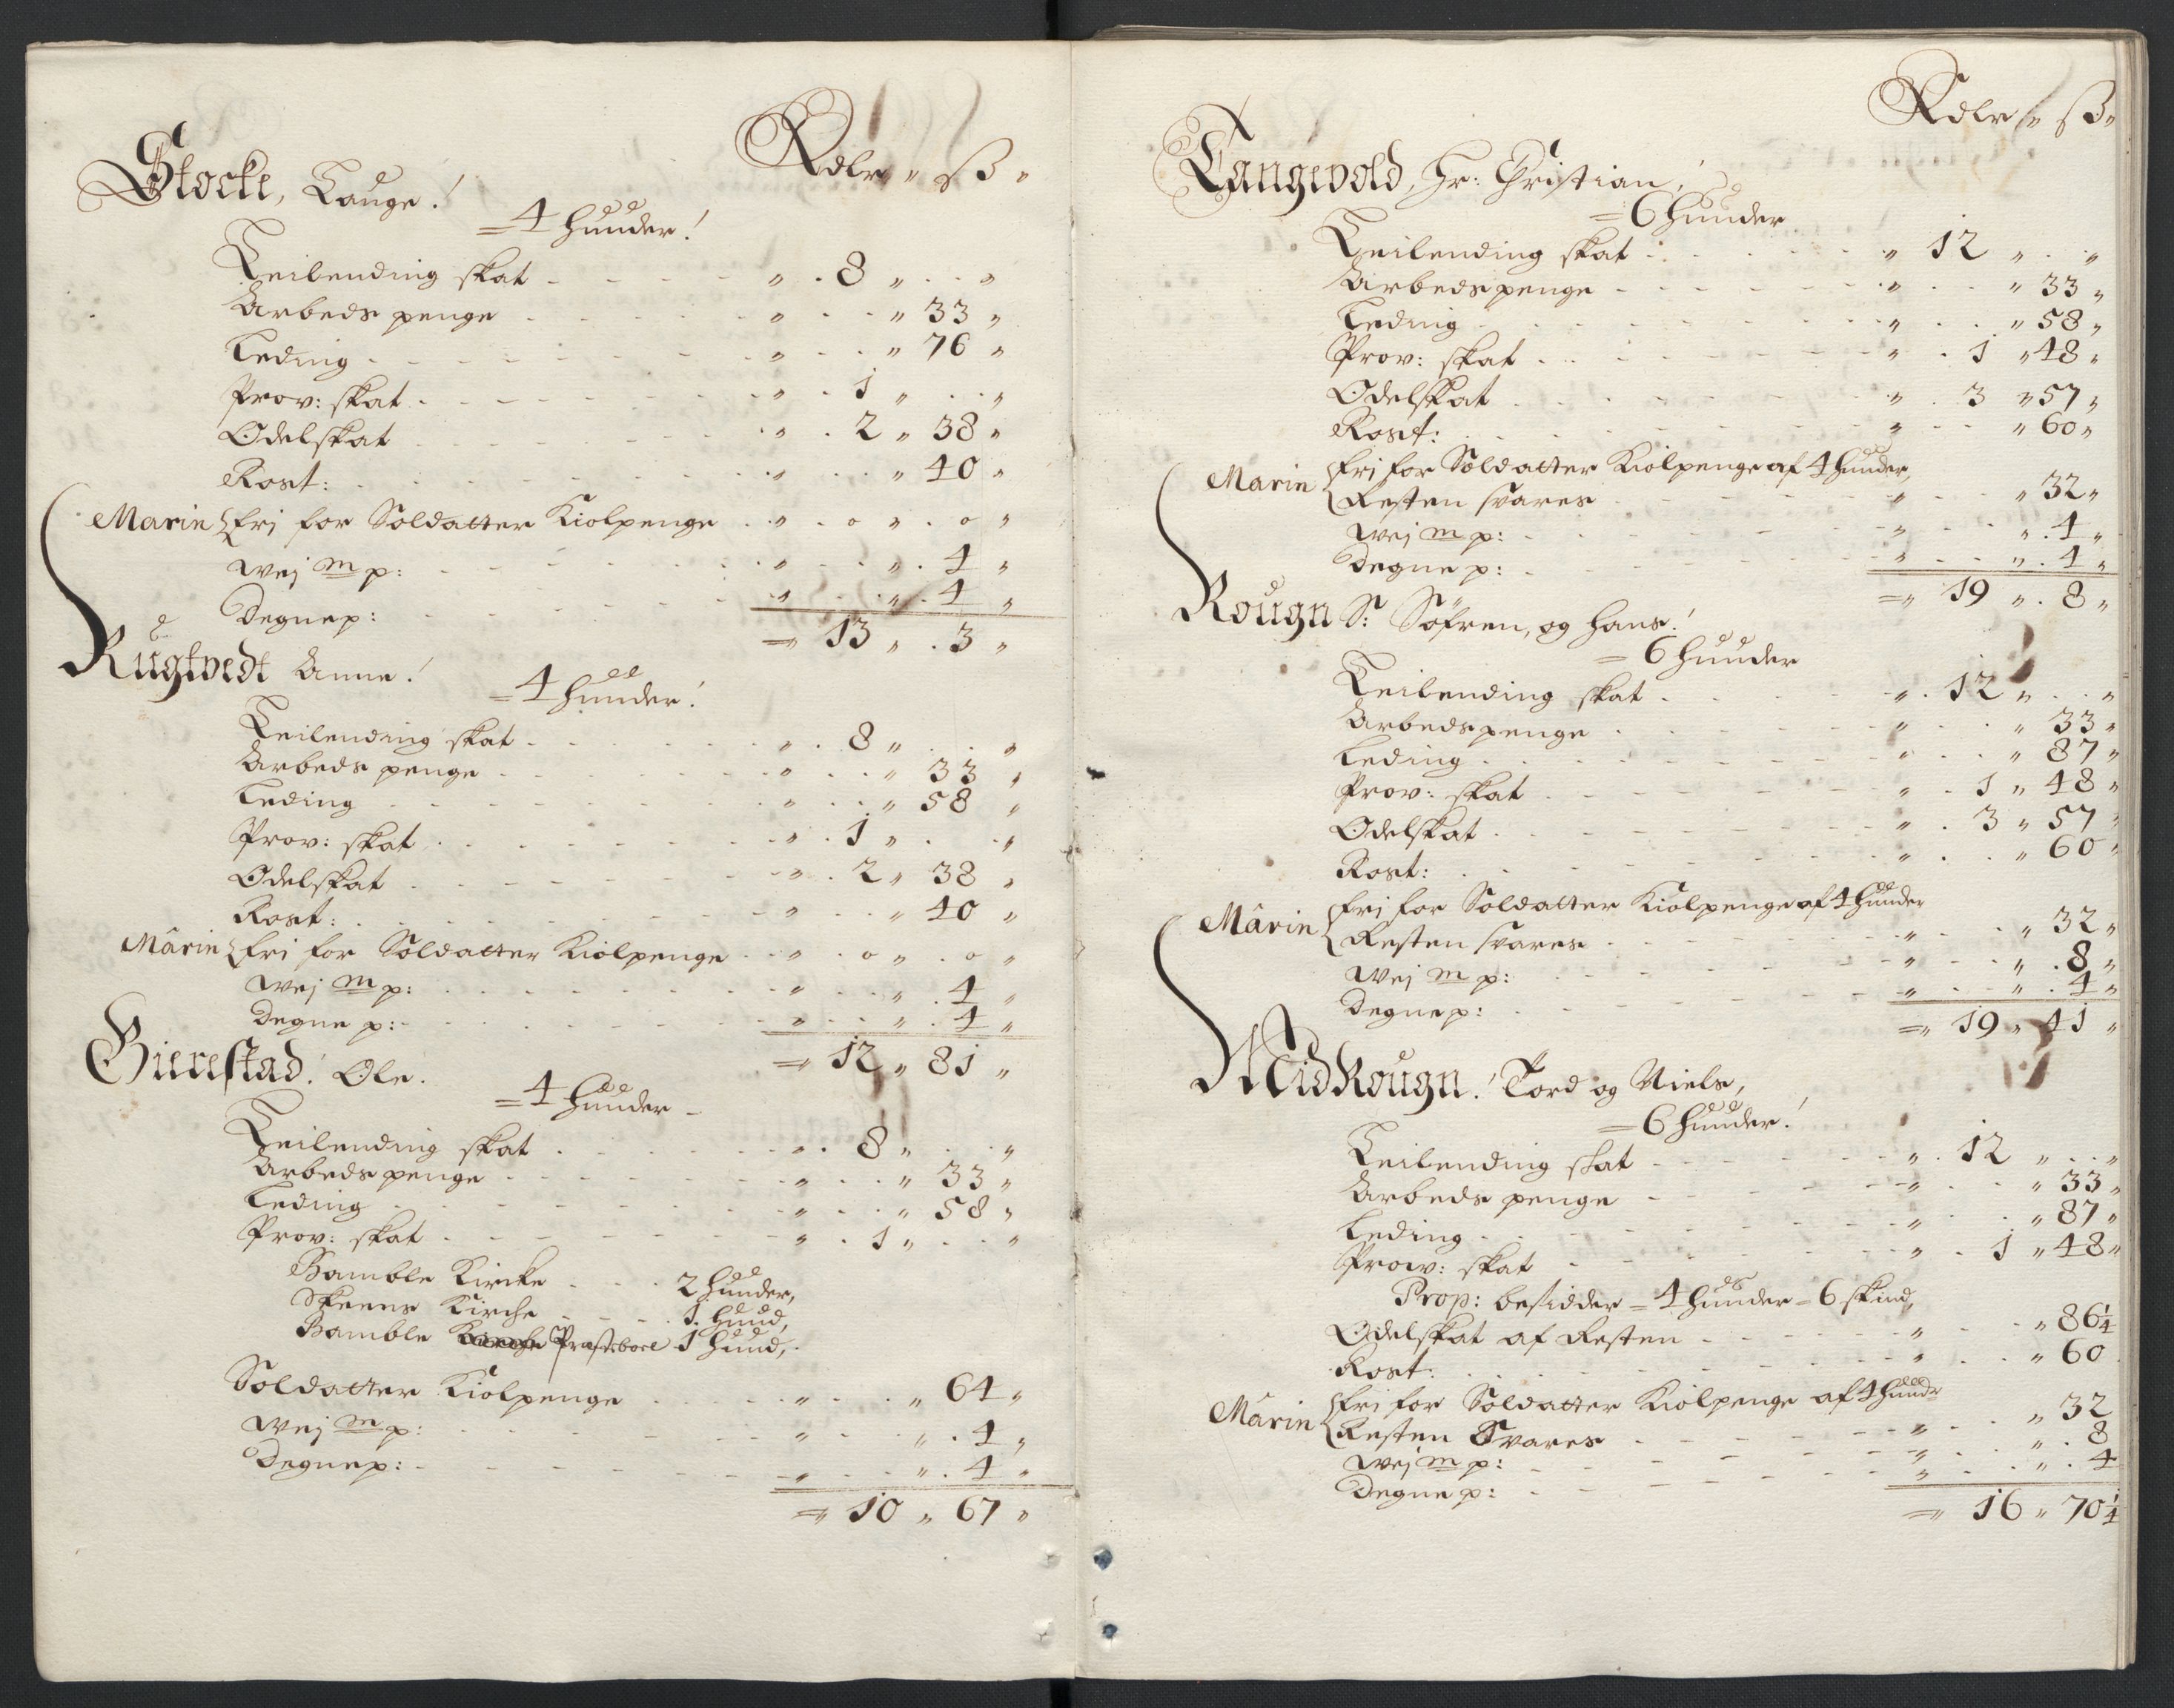 Rdlr " ß "
Stocke, Lauge!
= 4 huuder!
Leilending skat - - - " . 8 " . . "
Arbeds penge - - - " . . " 33 "
Leding - - - " . . " 76 "
Prov: skat - - - " . 1 " . . "
Odelskat - - - " . 2 " 38 "
Rost: - - - " . . " 40 "
Marin { fri for Soldatter Kiolpenge . " . o " . o "
Wej m p: - - - " . . " . 4 "
Degne p: - - - " . . " . 4 "
= 13 " . 3 "
Rugtvedt Anne!
= 4 huuder!
Leilending skat - - - " . 8 " . . "
Arbeds penge - - - " . . " 33 "
Leding - - - " . . " 58 "
Prov: skat - - - " . 1 " . . "
Odelskat - - - " . 2 " 38 "
Rost: - - - " . . " 40 "
Marin { fri for Soldatter Kiolpenge . " . o " . o "
Wej m p: - - - " . . " . 4 "
Degne p: - - - " . . " . 4 "
= 12 " 81 "
Gierestad! Ole.
= 4 huuder -
Leilending skat - - - " . 8 " . . "
Arbeds penge - - - " . . " 33 "
Leding - - - " . . " 58 "
Prov: skat - - - " . 1 " . . "
Bamble Kircke - - - 2 huuder,
Skeens Kirche - - - 1. hud,
Bamble Præsteboel 1 hud,
Soldatter Kiolpenge - - - " . . " 64 "
Wej m p: - - - " . . " . 4 "
Degne p: - - - " . . " . 4 "
= 10 " 67 "
Rdlr " ß "
Tangevold, Hr: Christian,
= 6 huuder
Leilending skat - - - " 12 " . . "
Arbeds penge - - - " . . " 33 "
Leding - - - " . . " 58 "
Prov: skat - - - " . 1 " 48 "
Odelskat - - - " . 3 " 57 "
Rost: - - - " . . " 60 "
Marin { fri for Soldatter Kiolpenge af 4 huuder,
Resten svares - - - " . . " 32 "
Wej m p: - - - " . . " . 4 "
Degne p: - - - " . . " . 4 "
= 19 " . 8 "
Rougn Sr Söfren, og Hans!
= 6 huuder
Leilending skat - - - " . 12 " . . "
Arbeds penge - - - " . . " 33 "
Leding - - - " . . " 87 "
Prov: skat - - - " . 1 " 48 "
Odelskat - - - " . 3 " 57 "
Rost: - - - " . . " 60 "
Marin { fri for Soldatter Kiolpenge af 4 huuder
Resten svares - - - " . . " 32 "
Wej m p: - - - " . . " . 8 "
Degne p: - - - " . . " . 4 "
= 19 " 41 "
MidRougn! Tord og Niels,
= 6 huuder!
Leilending skat - - - " . 12 " . . "
Arbeds penge - - - " . . " 33 "
Leding - - - " . . " 87 "
Prov: skat - - - " . 1 " 48 "
Prop: besidder = 4 huuder = 6 skind,
Odelskat af Resten - - - " . . " 86 1/4
Rost: - - - " . . " 60
Marin { fri for Soldatter Kiolpenge af 4 huudr
Resten Svares - - - " . . " 32
Wej m p: - - - " . . " . 8
Degne p: - - - " . . " . 4
= 16 " 70 1/4